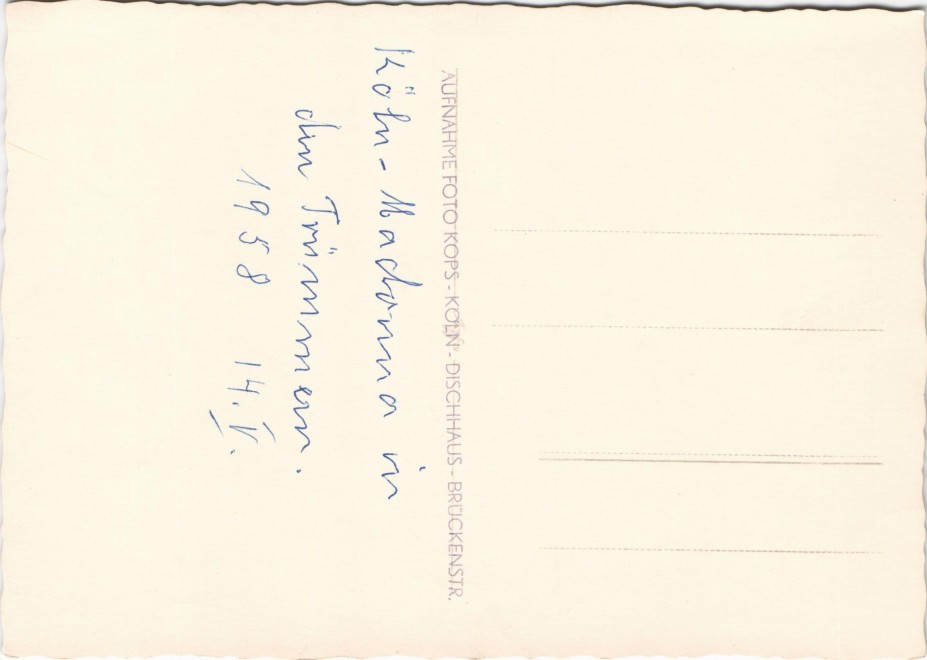 Köln - Madonna in
den Trümmern.
1958 14. V.
AUFNAHME FOTO KOPS - KÖLN - DISCHHAUS - BRÜCKENSTR.